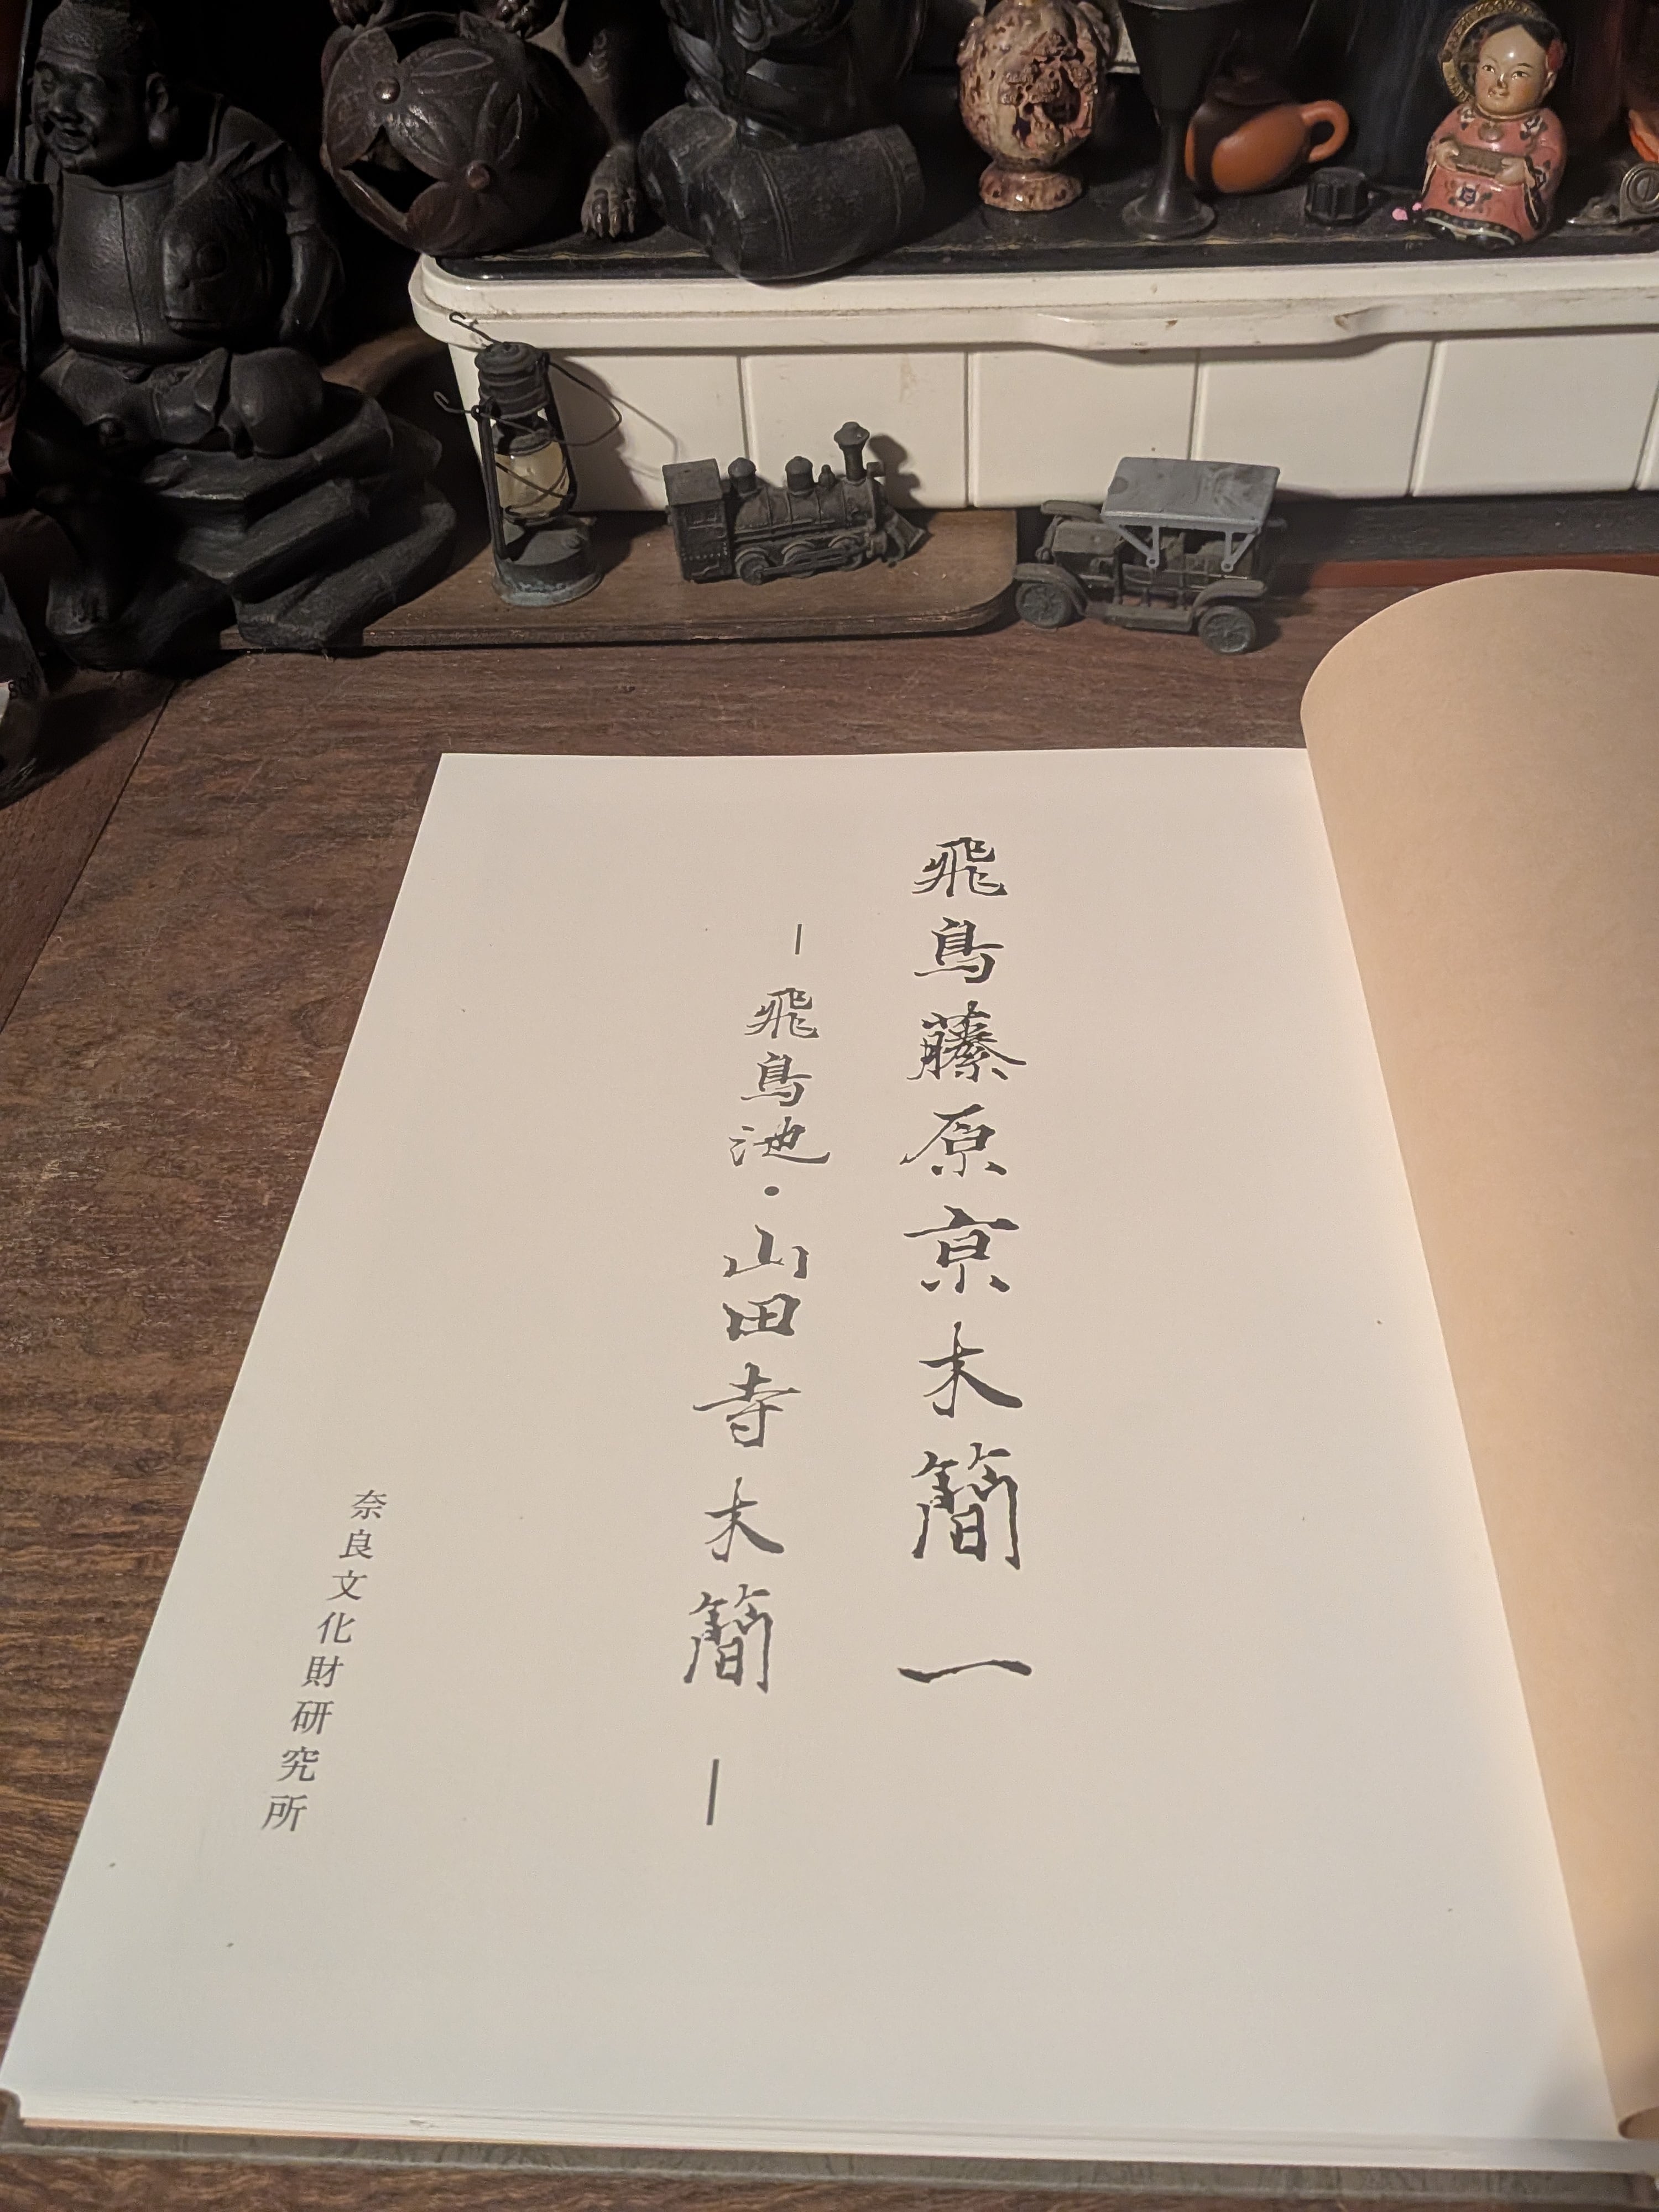 飛鳥藤原京木簡一
―飛鳥池・山田寺木簡―
奈良文化財研究所